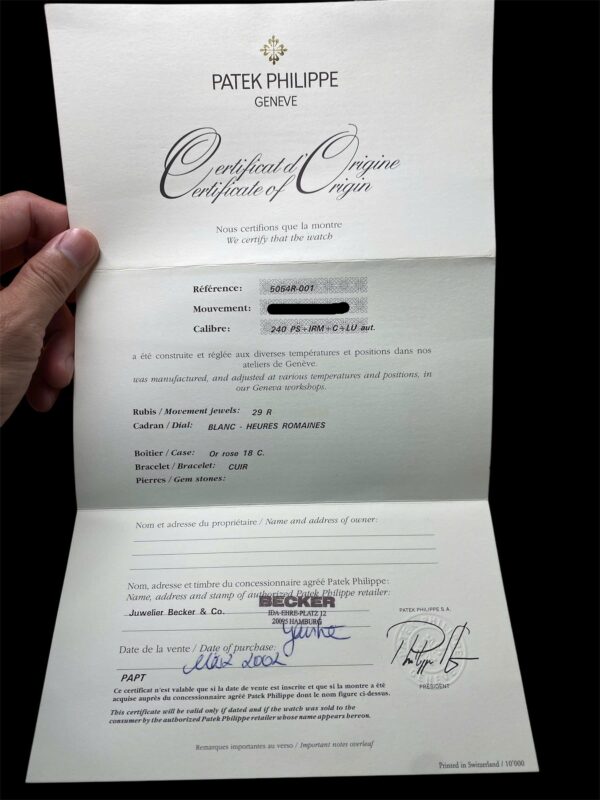 PATEK PHILIPPE
GENEVE
Certificat d'Origine
Certificate of Origin
Nous certifions que la montre
We certify that the watch
Référence: 5054R-001
Mouvement:
Calibre: 240 PS÷IRM÷C÷LU aut.
a été construite et réglée aux diverses températures et positions dans nos
ateliers de Genève.
was manufactured, and adjusted at various temperatures and positions, in
our Geneva workshops.
Rubis / Movement jewels: 29 R
Cadran / Dial: BLANC - HEURES ROMAINES
Boîtier / Case: Or rose 18 C.
Bracelet / Bracelet: CUIR
Pierres / Gem stones:
Nom et adresse du propriétaire / Name and address of owner:
Nom, adresse et timbre du concessionnaire agréé Patek Philippe:
Name, address and stamp of authorized Patek Philippe retailer:
Juwelier Becker & Co.
BECKER
IDA-EHRE-PLATZ 12
20095 HAMBURG
Date de la vente / Date of purchase:
März 2002
PAPT
Ce certificat n'est valable que si la date de vente est inscrite et que si la montre a été
acquise auprès du concessionnaire agréé Patek Philippe dont le nom figure ci-dessus.
This certificate will be valid only if dated and if the watch was sold to the
consumer by the authorized Patek Philippe retailer whose name appears hereon.
PATEK PHILIPPE S.A.
PRÉSIDENT
Remarques importantes au verso / Important notes overleaf
Printed in Switzerland / 10'000